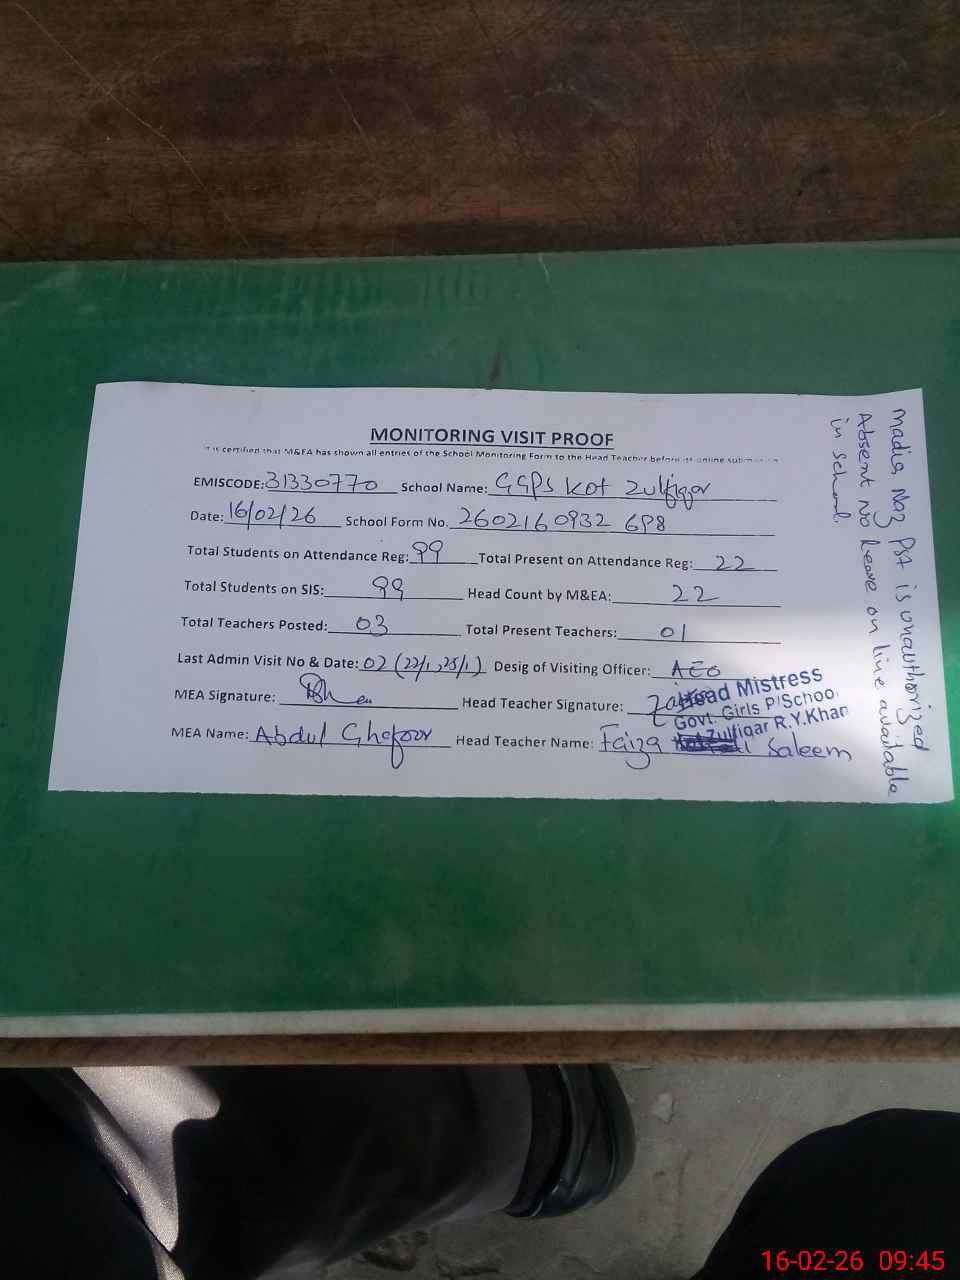 MONITORING VISIT PROOF
It is certified that M&EA has shown all entries of the School Monitoring Form to the Head Teacher before its online submission
EMISCODE: 31330770 School Name: GGPS Kot Zulfiqar
Date: 16/02/26 School Form No. 2602160932 698
Total Students on Attendance Reg: 99 Total Present on Attendance Reg: 22
Total Students on SIS: 99 Head Count by M&EA: 22
Total Teachers Posted: 03 Total Present Teachers: 01
Last Admin Visit No & Date: 02 (22/1, 25/1) Desig of Visiting Officer: AEO
MEA Signature: Head Teacher Signature:
Head Mistress
Govt. Girls P/School
Kot Zulfiqar R.Y.Khan
MEA Name: Abdul Ghafoor Head Teacher Name: Faiza Saleem
Madia Naz PST is unauthorized
Absent No leave on line available
in school
16-02-26 09:45